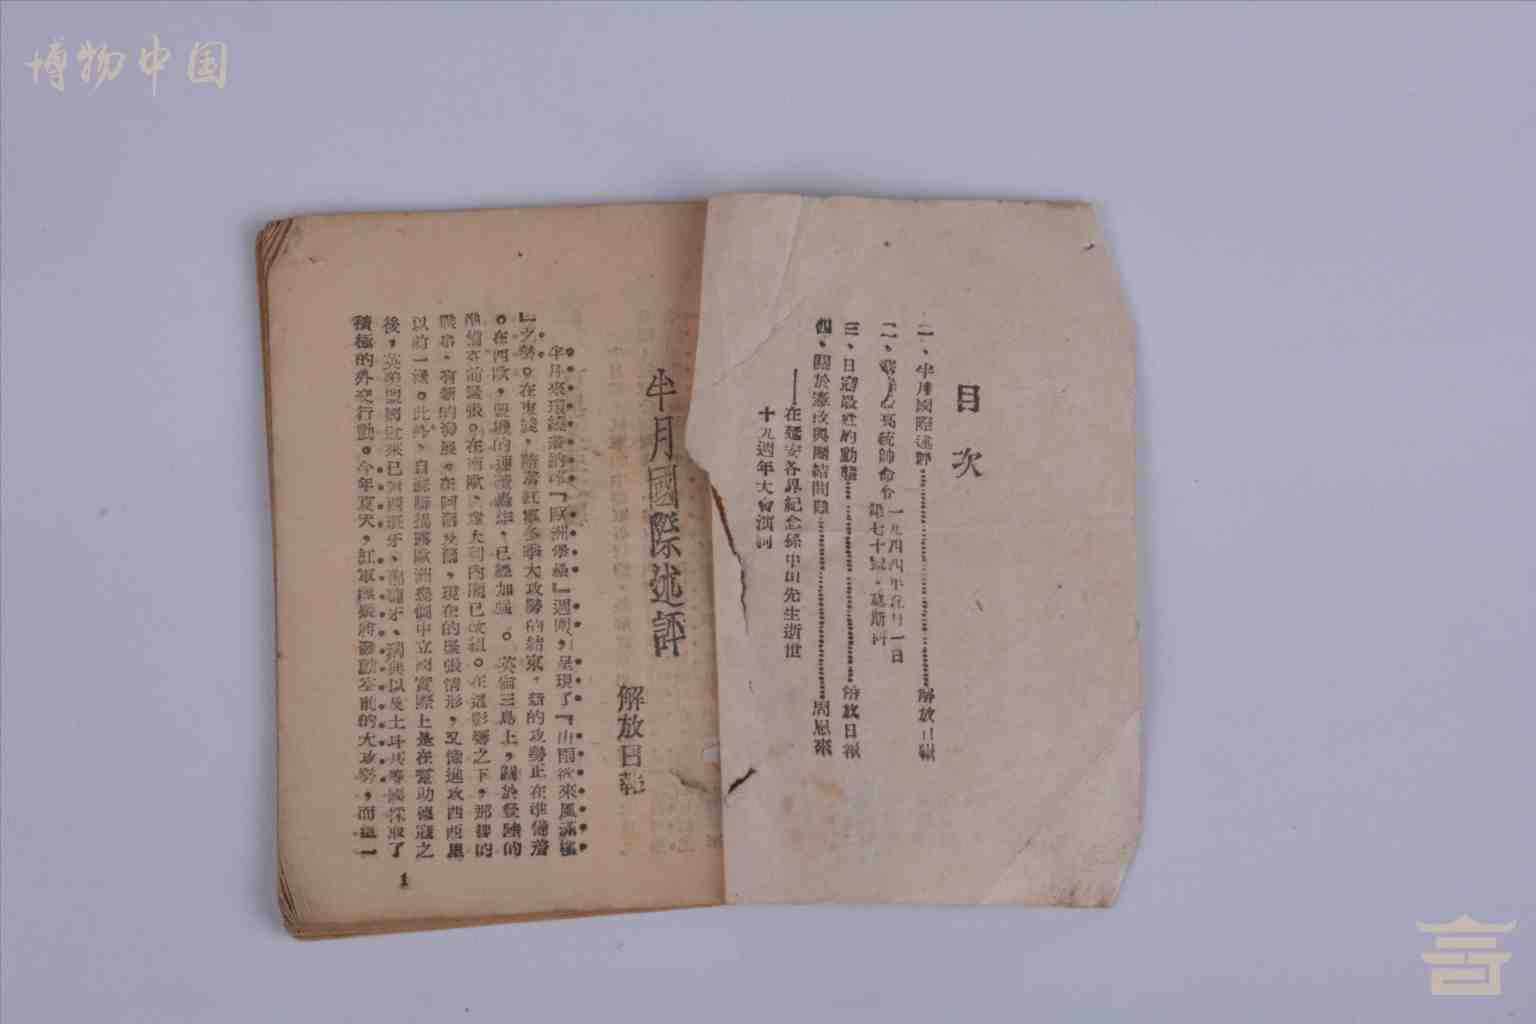 博物中国
目次
一、半月國際述評……解放日報
二、蘇最高統帥命令 一九四四年五月一日
第七十號·莫斯科
三、日寇最近的動態……解放日報
四、關於憲政與團結問題……周恩來
——在延安各界紀念孫中山先生逝世
十九週年大會演詞
半月國際述評
解放日報
半月來環繞着所謂『歐洲堡壘』週圍，呈現了『山雨欲來風滿樓
』之勢。在東綫，隨着紅軍冬季大攻勢的結束，新的攻勢正在準備着
。在西歐，盟機的連續轟炸，已經加强。英倫三島上，關於登陸的
準備空前緊張。在南歐，意大利內閣已改組。在這影響之下，那裡的
戰事，有新的發展。在阿
以前一樣。此外，自蘇聯揭露歐洲幾個中立國實際上是在幫助德寇之
後，英美盟國近來已對西班牙、葡萄牙、瑞典以及土耳其等國採取了
積極的外交行動。今年夏天，紅軍無疑將發動空前的大攻勢，而這一
1